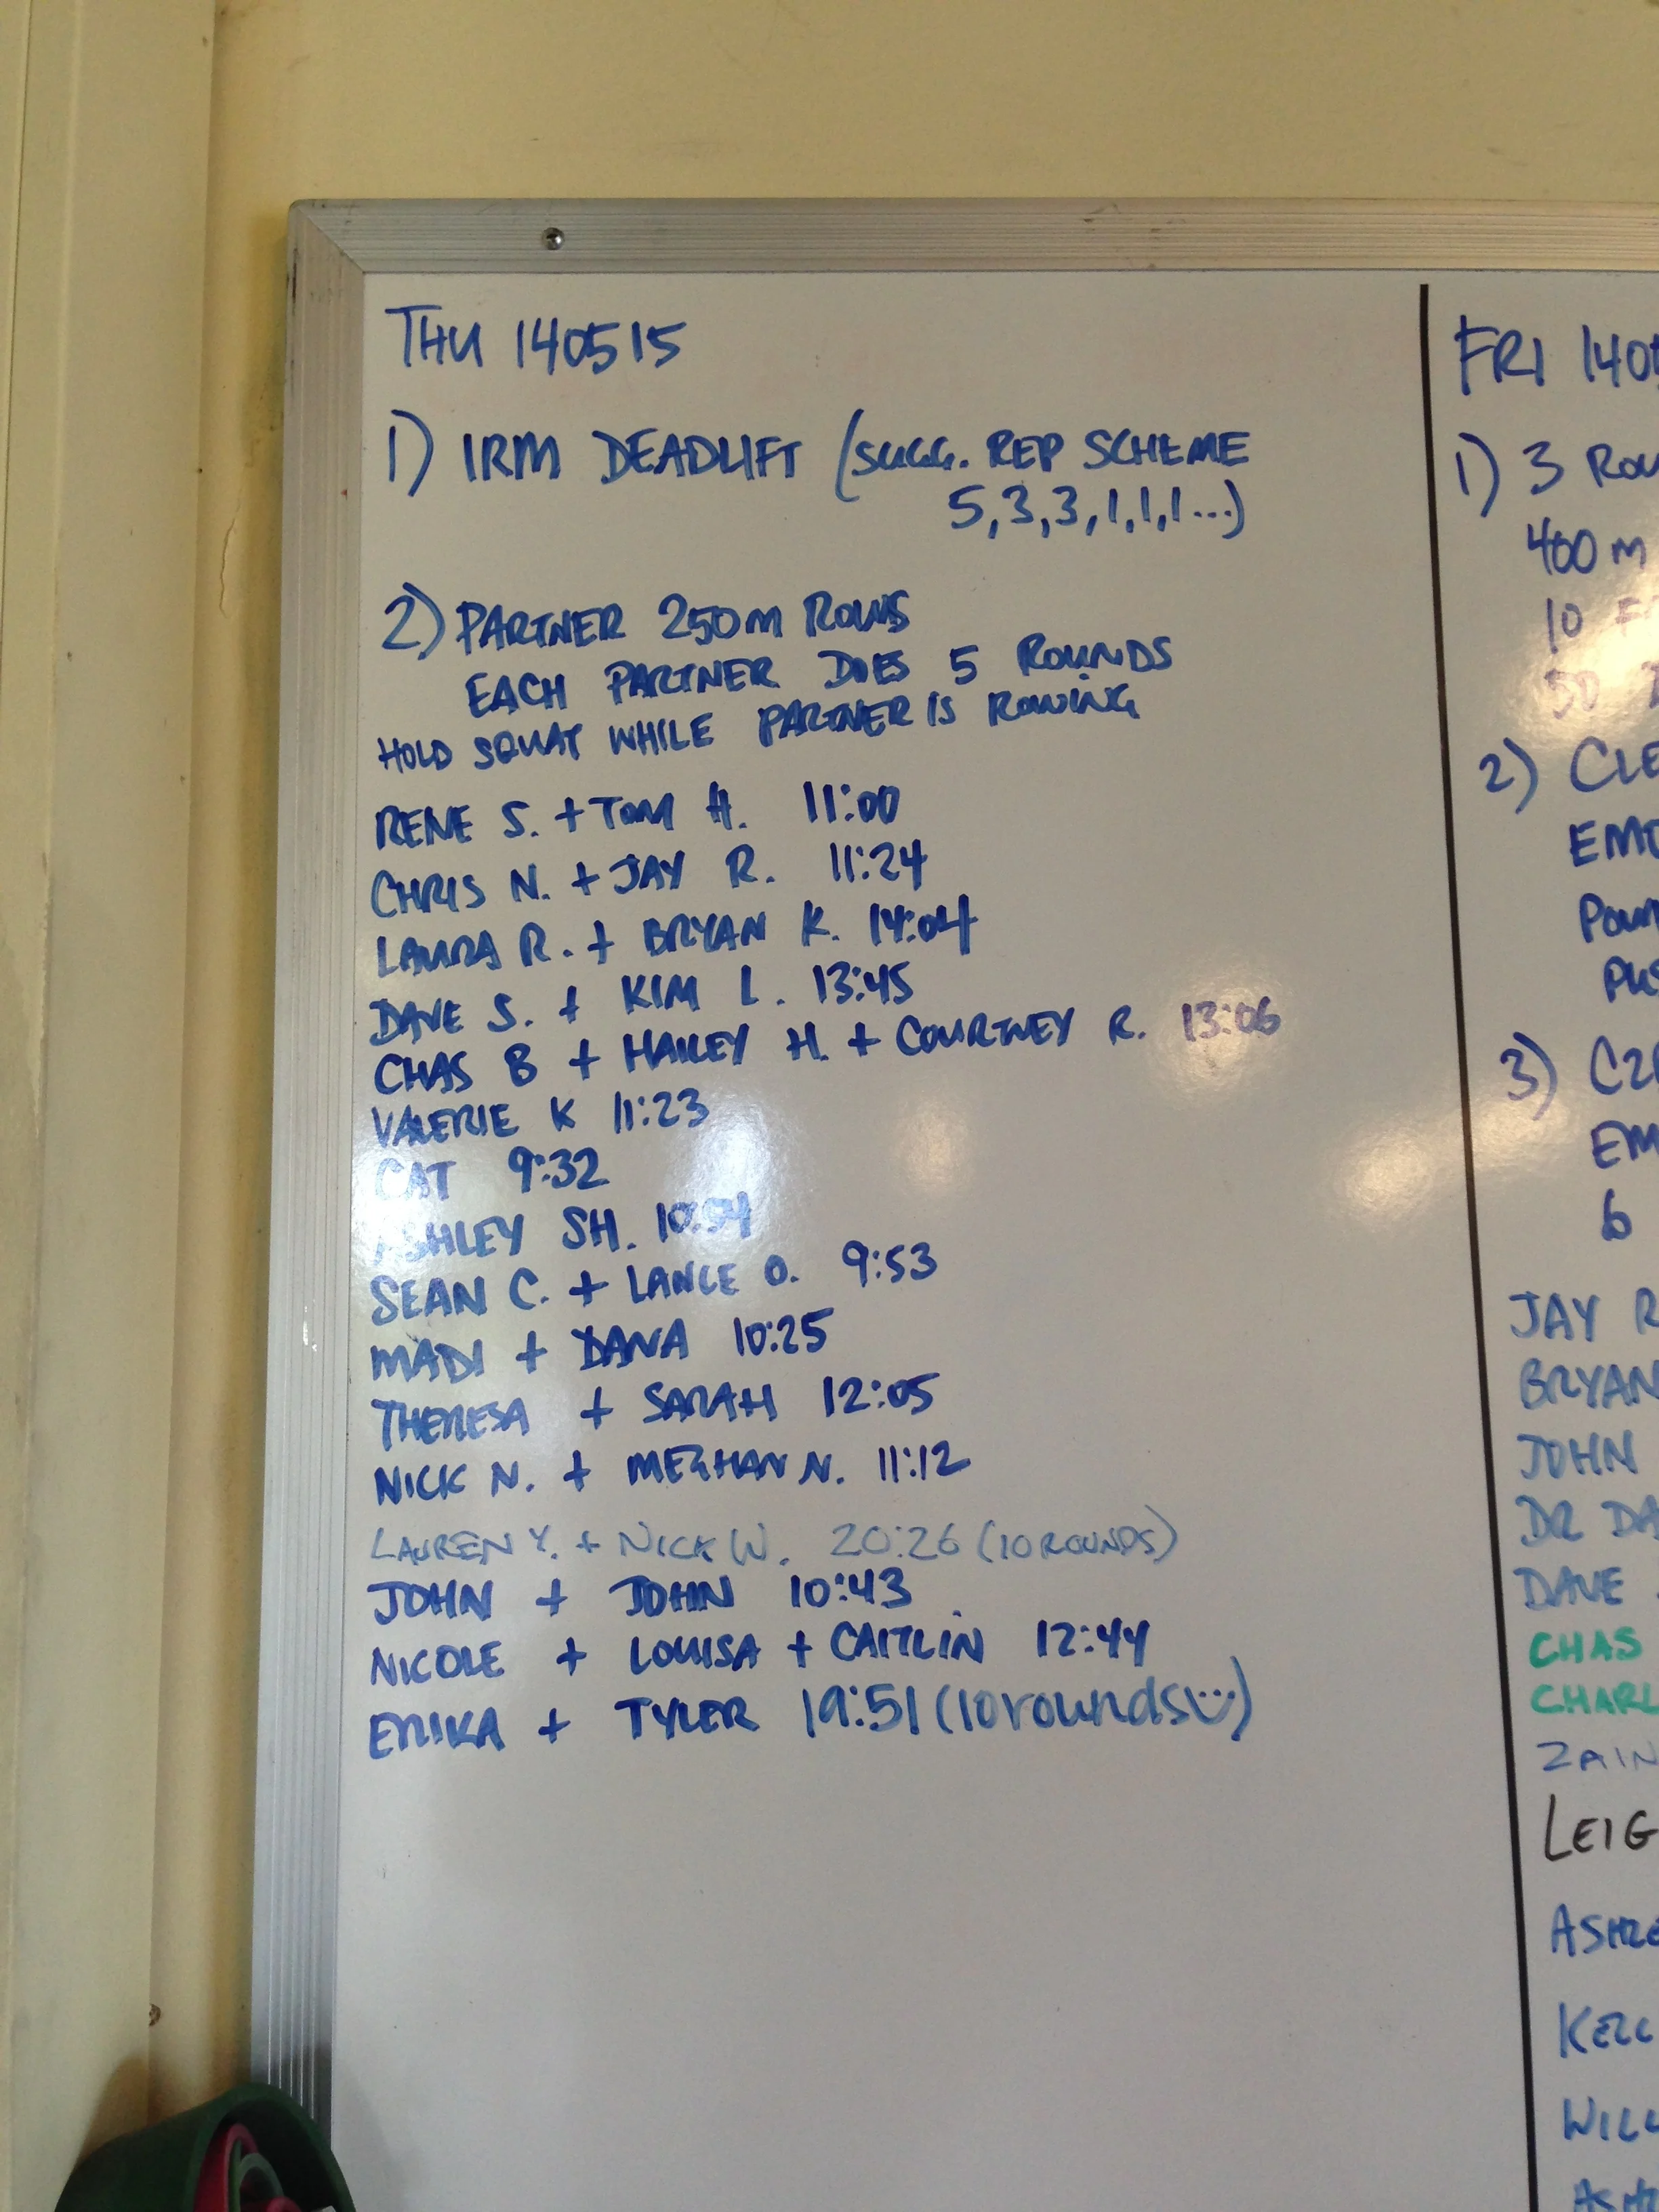 THU 140515
1) 1RM DEADLIFT (SUGG. REP SCHEME
5,3,3,1,1,1...)
2) PARTNER 250M ROWS
EACH PARTNER DOES 5 ROUNDS
HOLD SQUAT WHILE PARTNER IS ROWING
RENE S. + TOM H. 11:00
CHRIS N. + JAY R. 11:24
LAURA R. + BRYAN K. 14:04
DAVE S. + KIM L. 13:45
CHAS B + HAILEY H. + COURTNEY R. 13:06
VALERIE K 11:23
CAT 9:32
ASHLEY SH. 10:54
SEAN C. + LANCE O. 9:53
MADI + DANA 10:25
THERESA + SARAH 12:05
NICK N. + MEGHAN N. 11:12
LAUREN Y. + NICK W. 20:26 (10 ROUNDS)
JOHN + JOHN 10:43
NICOLE + LOUISA + CAITLIN 12:44
ERIKA + TYLER 19:51 (10 rounds)
FRI 140
1) 3 ROU
400 M
10
50
2) CLE
EMO
POW
PUS
3) C2
EM
6
JAY R
BRYAN
JOHN
DR DA
DAVE
CHAS
CHARL
ZAIN
LEIG
ASHLE
KELL
WILL